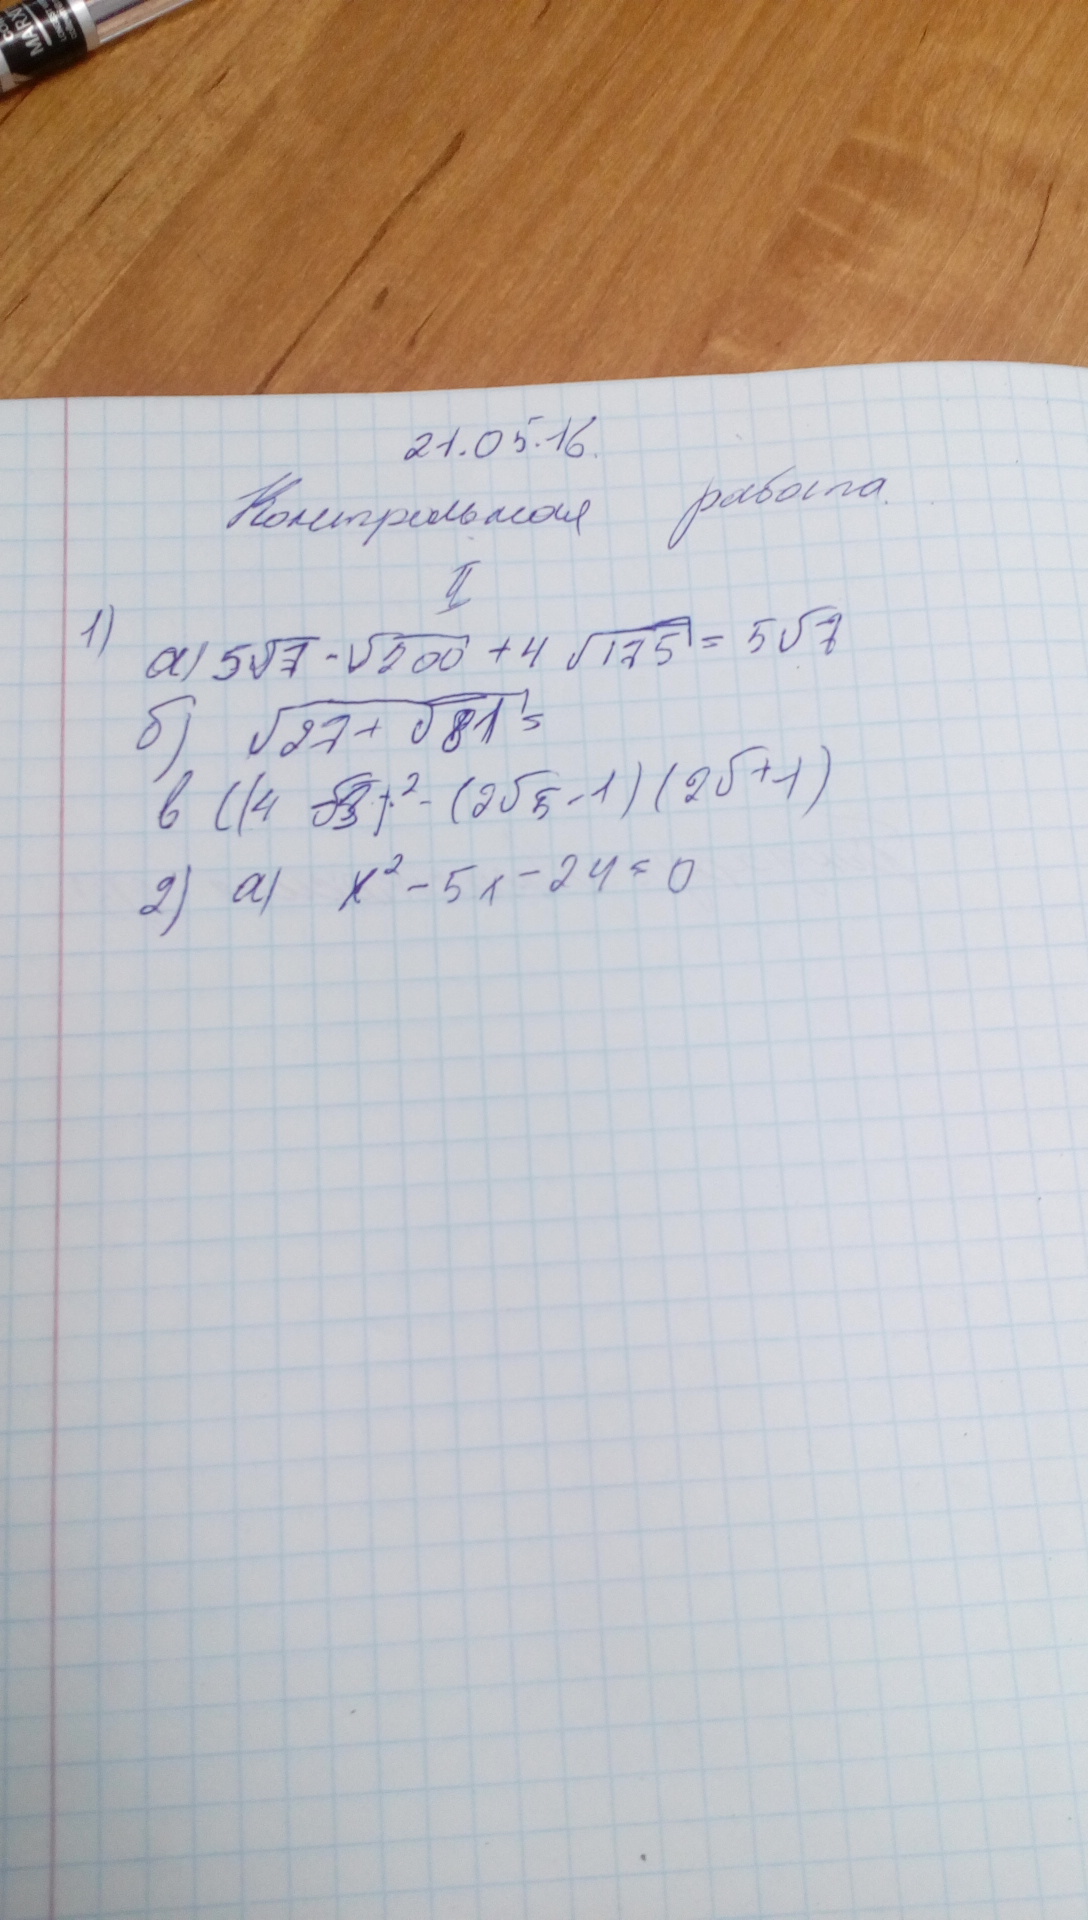 MARK
21.05.16.
Контрольная работа.
II
1)
а) 5√7 - √500 + 4 √175 = 5√7
б) √27 + √81 =
в ((4 √3)² - (2√5 - 1) (2√ + 1)
2) а) x² - 5x - 24 = 0